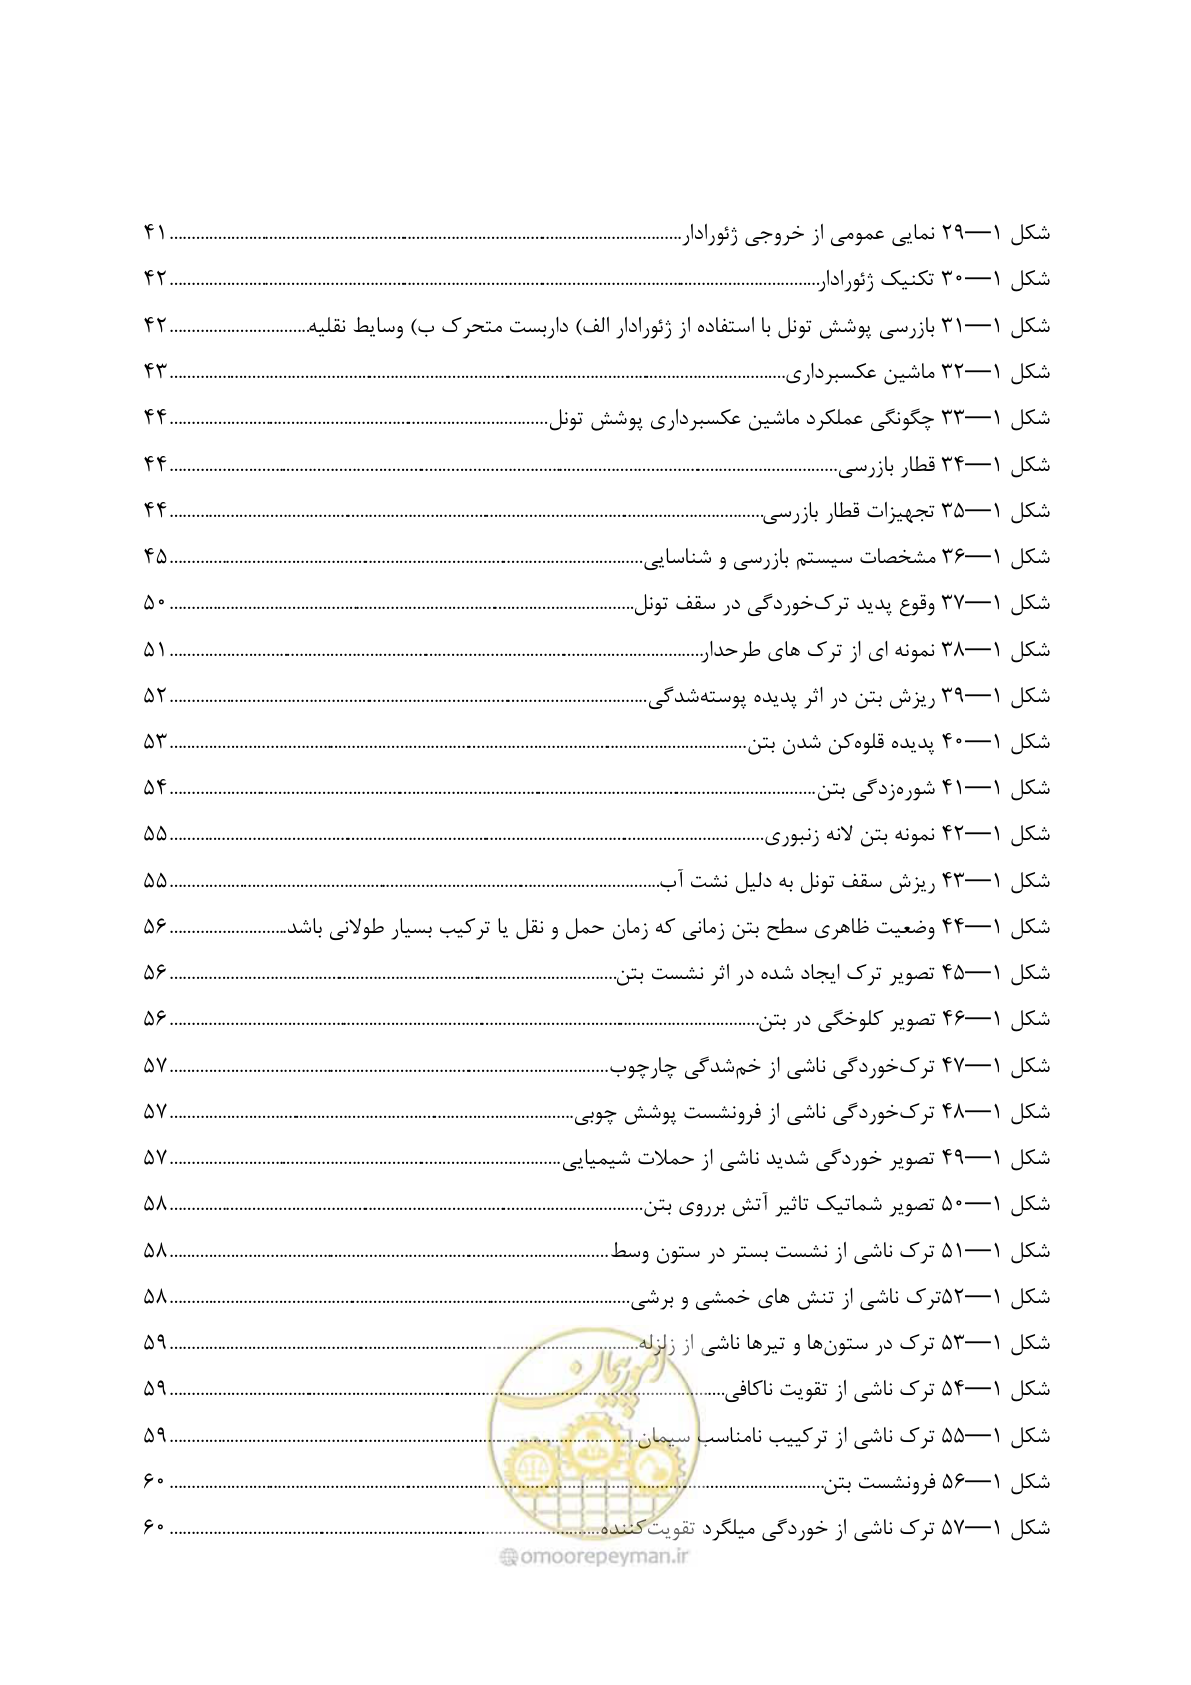 شکل ۱—۲۹ نمایی عمومی از خروجی ژئورادار ........ ۴۱
شکل ۱—۳۰ تکنیک ژئورادار ........ ۴۲
شکل ۱—۳۱ بازرسی پوشش تونل با استفاده از ژئورادار الف) داربست متحرک ب) وسایط نقلیه ........ ۴۲
شکل ۱—۳۲ ماشین عکسبرداری ........ ۴۳
شکل ۱—۳۳ چگونگی عملکرد ماشین عکسبرداری پوشش تونل ........ ۴۴
شکل ۱—۳۴ قطار بازرسی ........ ۴۴
شکل ۱—۳۵ تجهیزات قطار بازرسی ........ ۴۴
شکل ۱—۳۶ مشخصات سیستم بازرسی و شناسایی ........ ۴۵
شکل ۱—۳۷ وقوع پدید ترک‌خوردگی در سقف تونل ........ ۵۰
شکل ۱—۳۸ نمونه ای از ترک های طرحدار ........ ۵۱
شکل ۱—۳۹ ریزش بتن در اثر پدیده پوسته‌شدگی ........ ۵۲
شکل ۱—۴۰ پدیده قلوه‌کن شدن بتن ........ ۵۳
شکل ۱—۴۱ شوره‌زدگی بتن ........ ۵۴
شکل ۱—۴۲ نمونه بتن لانه زنبوری ........ ۵۵
شکل ۱—۴۳ ریزش سقف تونل به دلیل نشت آب ........ ۵۵
شکل ۱—۴۴ وضعیت ظاهری سطح بتن زمانی که زمان حمل و نقل یا ترکیب بسیار طولانی باشد ........ ۵۶
شکل ۱—۴۵ تصویر ترک ایجاد شده در اثر نشست بتن ........ ۵۶
شکل ۱—۴۶ تصویر کلوخگی در بتن ........ ۵۶
شکل ۱—۴۷ ترک‌خوردگی ناشی از خم‌شدگی چارچوب ........ ۵۷
شکل ۱—۴۸ ترک‌خوردگی ناشی از فرونشست پوشش چوبی ........ ۵۷
شکل ۱—۴۹ تصویر خوردگی شدید ناشی از حملات شیمیایی ........ ۵۷
شکل ۱—۵۰ تصویر شماتیک تاثیر آتش برروی بتن ........ ۵۸
شکل ۱—۵۱ ترک ناشی از نشست بستر در ستون وسط ........ ۵۸
شکل ۱—۵۲ترک ناشی از تنش های خمشی و برشی ........ ۵۸
شکل ۱—۵۳ ترک در ستون‌ها و تیرها ناشی از زلزله ........ ۵۹
شکل ۱—۵۴ ترک ناشی از تقویت ناکافی ........ ۵۹
شکل ۱—۵۵ ترک ناشی از ترکییب نامناسب سیمان ........ ۵۹
شکل ۱—۵۶ فرونشست بتن ........ ۶۰
شکل ۱—۵۷ ترک ناشی از خوردگی میلگرد تقویت‌کننده ........ ۶۰
امور پیمان
@omoorepeyman.ir